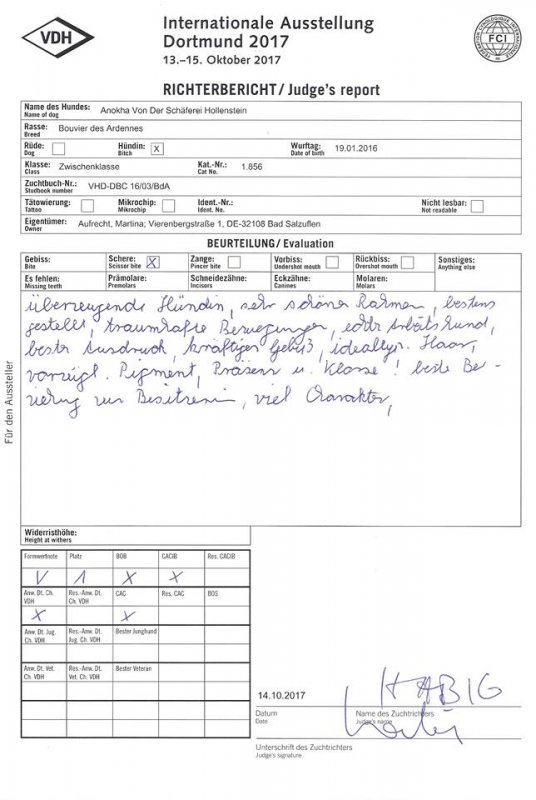 VDH
Internationale Ausstellung
Dortmund 2017
13.–15. Oktober 2017
FCI
FEDERATION CYNOLOGIQUE INTERNATIONALE
RICHTERBERICHT / Judge's report
Name des Hundes: Anokha Von Der Schäferei Hollenstein
Name of dog
Rasse: Bouvier des Ardennes
Breed
Rüde: Hündin: X Wurftag: 19.01.2016
Dog Bitch Date of birth
Klasse: Zwischenklasse Kat.-Nr.: 1.856
Class Cat No.
Zuchtbuch-Nr.: VHD-DBC 16/03/BdA
Studbook number
Tätowierung: Mikrochip: Ident.-Nr.: Nicht lesbar:
Tattoo Mikrochip Ident. No. Not readable
Eigentümer: Aufrecht, Martina; Vierenbergstraße 1, DE-32108 Bad Salzuflen
Owner
BEURTEILUNG / Evaluation
Gebiss: Schere: X Zange: Vorbiss: Rückbiss: Sonstiges:
Bite Scissor bite Pincer bite Undershot mouth Overshot mouth Anything else
Es fehlen: Prämolare: Schneidezähne: Eckzähne: Molaren:
Missing teeth Premolars Incisors Canines Molars
überzeugende Hündin, sehr schöner Rahmen, bestens
gestellt, traumhafte Bewegungen, echter Arbeitshund,
bester Ausdruck, kräftiges Gebiß, Haar,
vorzügl. Pigment, Präsenz u. Klasse! beste Be-
zur Besitzerin, viel Charakter,
Für den Aussteller
Widerristhöhe:
Height at withers
Formwertnote Platz BOB CACIB Res. CACIB
V 1 X X
Anw. Dt. Ch. VDH Res.-Anw. Dt. Ch. VDH CAC Res. CAC BOS
X X
Anw. Dt. Jug. Ch. VDH Res.-Anw. Dt. Jug. Ch. VDH Bester Junghund
Anw. Dt. Vet. Ch. VDH Res.-Anw. Dt. Vet. Ch. VDH Bester Veteran
HABIG
14.10.2017
Datum Name des Zuchtrichters
Date Judge's name
Unterschrift des Zuchtrichters
Judge's signature